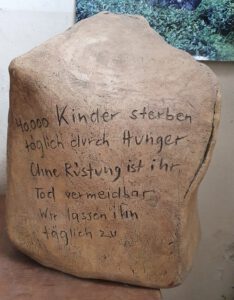 40.000 Kinder sterben
täglich durch Hunger
Ohne Rüstung ist ihr
Tod vermeidbar
Wir lassen ihn
täglich zu